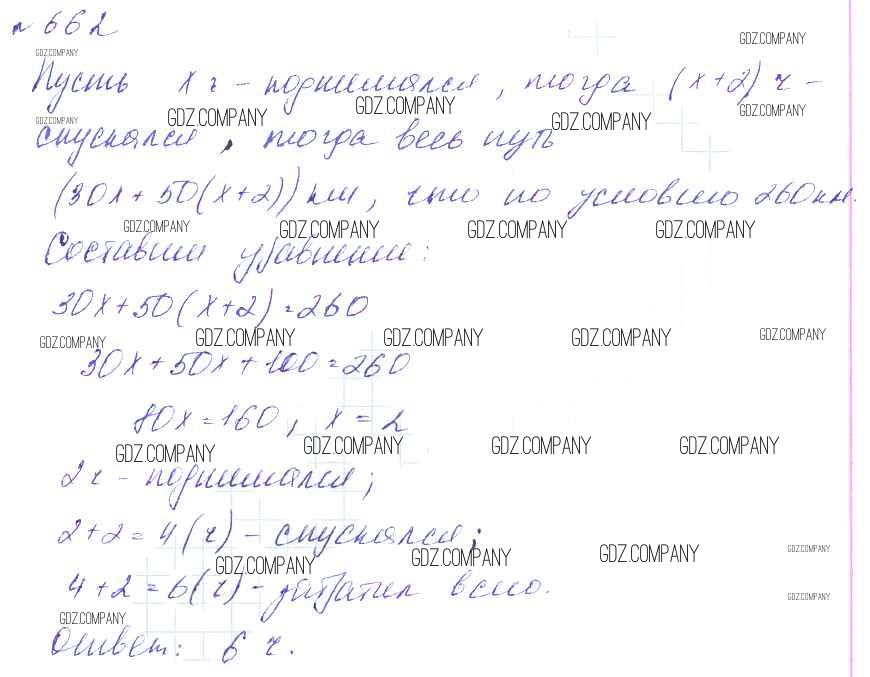 № 662
Пусть х ч - поднимался, тогда (х+2) ч -
спускался, тогда весь путь
(30х + 50(х+2)) км, что по условию 260 км.
Составим уравнение:
30х + 50(х+2) = 260
30х + 50х + 100 = 260
80х = 160; х = 2
2 ч - поднимался;
2 + 2 = 4 (ч) - спускался;
4 + 2 = 6 (ч) - затратил всего.
Ответ: 6 ч.
GDZ.COMPANY
GDZ.COMPANY
GDZ.COMPANY GDZ.COMPANY GDZ.COMPANY
GDZ.COMPANY GDZ.COMPANY
GDZ.COMPANY GDZ.COMPANY GDZ.COMPANY GDZ.COMPANY
GDZ.COMPANY GDZ.COMPANY GDZ.COMPANY GDZ.COMPANY GDZ.COMPANY
GDZ.COMPANY GDZ.COMPANY GDZ.COMPANY GDZ.COMPANY
GDZ.COMPANY GDZ.COMPANY GDZ.COMPANY GDZ.COMPANY
GDZ.COMPANY
GDZ.COMPANY